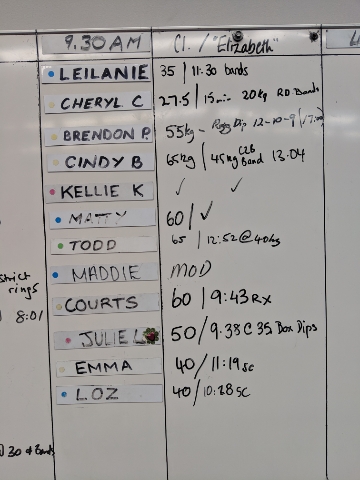 9.30 AM Cl. / "Elizabeth"
LEILANIE 35 | 11:30 bands
CHERYL C 27.5 | 15min 20kg RD Bands
BRENDON P. 55kg - Ring Dip 12-10-9
CINDY B 65kg | 45kg C2B Band 13.04
KELLIE K ✓ ✓
MATTY 60/ ✓
TODD 65 | 12:52 @ 40kg
MADDIE MOD
COURTS 60 | 9:43 RX
JULIE L 50/ 9.38 @ 35 Box Dips
EMMA 40/ 11:19 sc
LOZ 40/ 10:28 SC
strict
rings
8:01
30 & Bands